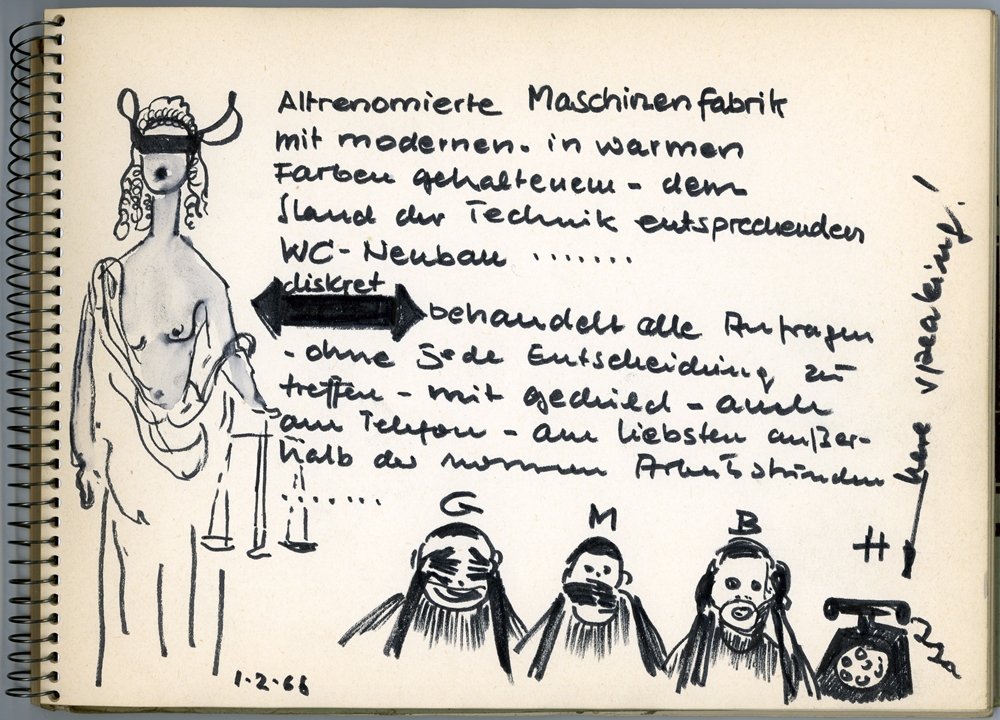 Altrenomierte Maschinenfabrik
mit modernen. in warmen
Farben gehaltenem - dem
Stand der Technik entsprechenden
WC-Neubau .......
diskret
behandelt alle Anfragen
- ohne jede Entscheidung zu
treffen - mit geduld - auch
am Telefon - am liebsten außer-
halb der normen Arbeitsstunden
.......
G M B H
here speaking!
1.2.66